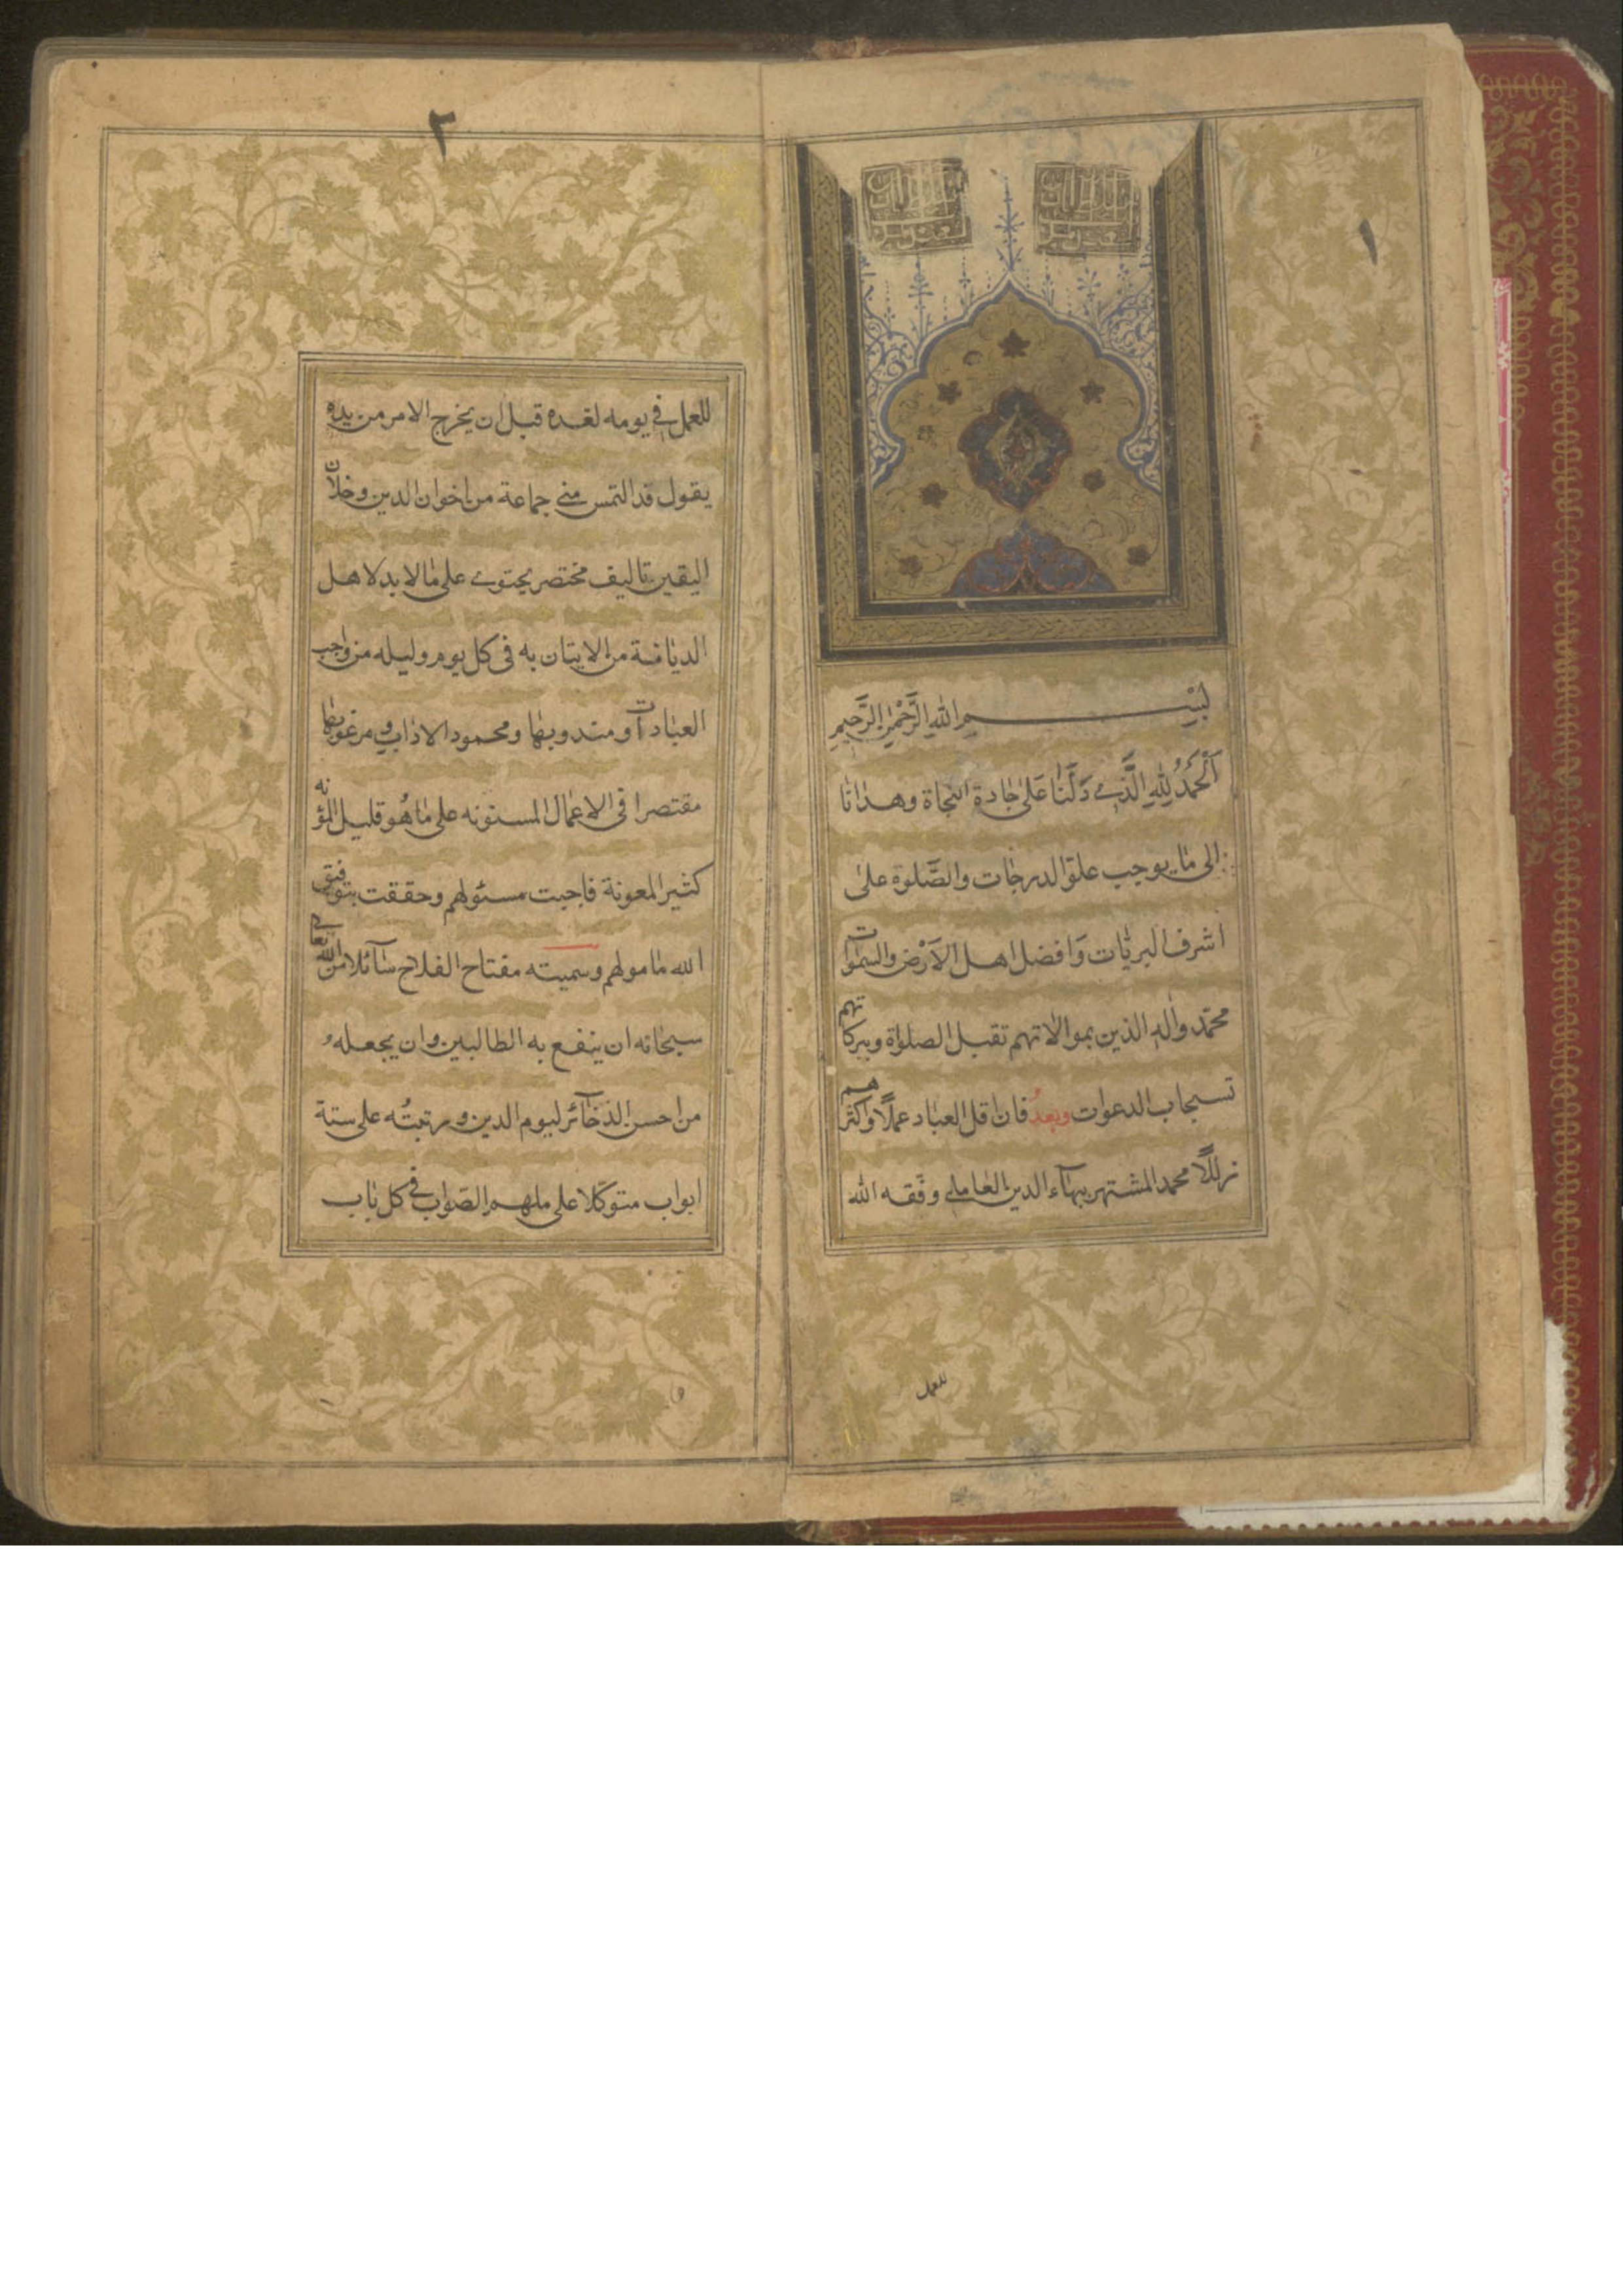 ١
بسم الله الرَّحْمٰنِ الرَّحِيمِ
اَلْحَمْدُ لِلّٰهِ الَّذي دَلَّنَا عَلىٰ جَادة النجاة وهدانا
الى ما يوجب علوّ الدرجات والصَّلوة علىٰ
اشرف البريات وَافضل اهل الاَرْض والسمٰوات
محمّد واٰله الذين بموالاتهم تقبل الصلواة وببركاتهم
تستجاب الدعوات وبعدُ فان اقل العباد عملًا واكثرهم
زللًا محمد المشتهر ببهآء الدين العاملي وفّقه الله
للعمل
٢
للعمل في يومه لغده قبل ان يخرج الامر من يده
يقول قد التمس مني جماعة من اخوان الدين وخلان
اليقين تاليف مختصر يحتوي على ما لا بد لاهل
الديانة من الايتان به فى كل يوم وليله من واجب
العبادات ومندوبها ومحمود الاداب ومرغوبها
مقتصرا فى الاعمال المسنونه على ما هُو قليل المؤنه
كثير المعونة فاجبت مسئولهم وحققت بتوفيق
الله مامولهم وسميته مفتاح الفلاح سآئلا من الله تعالى
سبحانه ان ينفع به الطالبين وان يجعله
من احسن الذخآئر ليوم الدين ورتبتُه على ستة
ابواب متوكّلا على ملهم الصّواب في كل باب